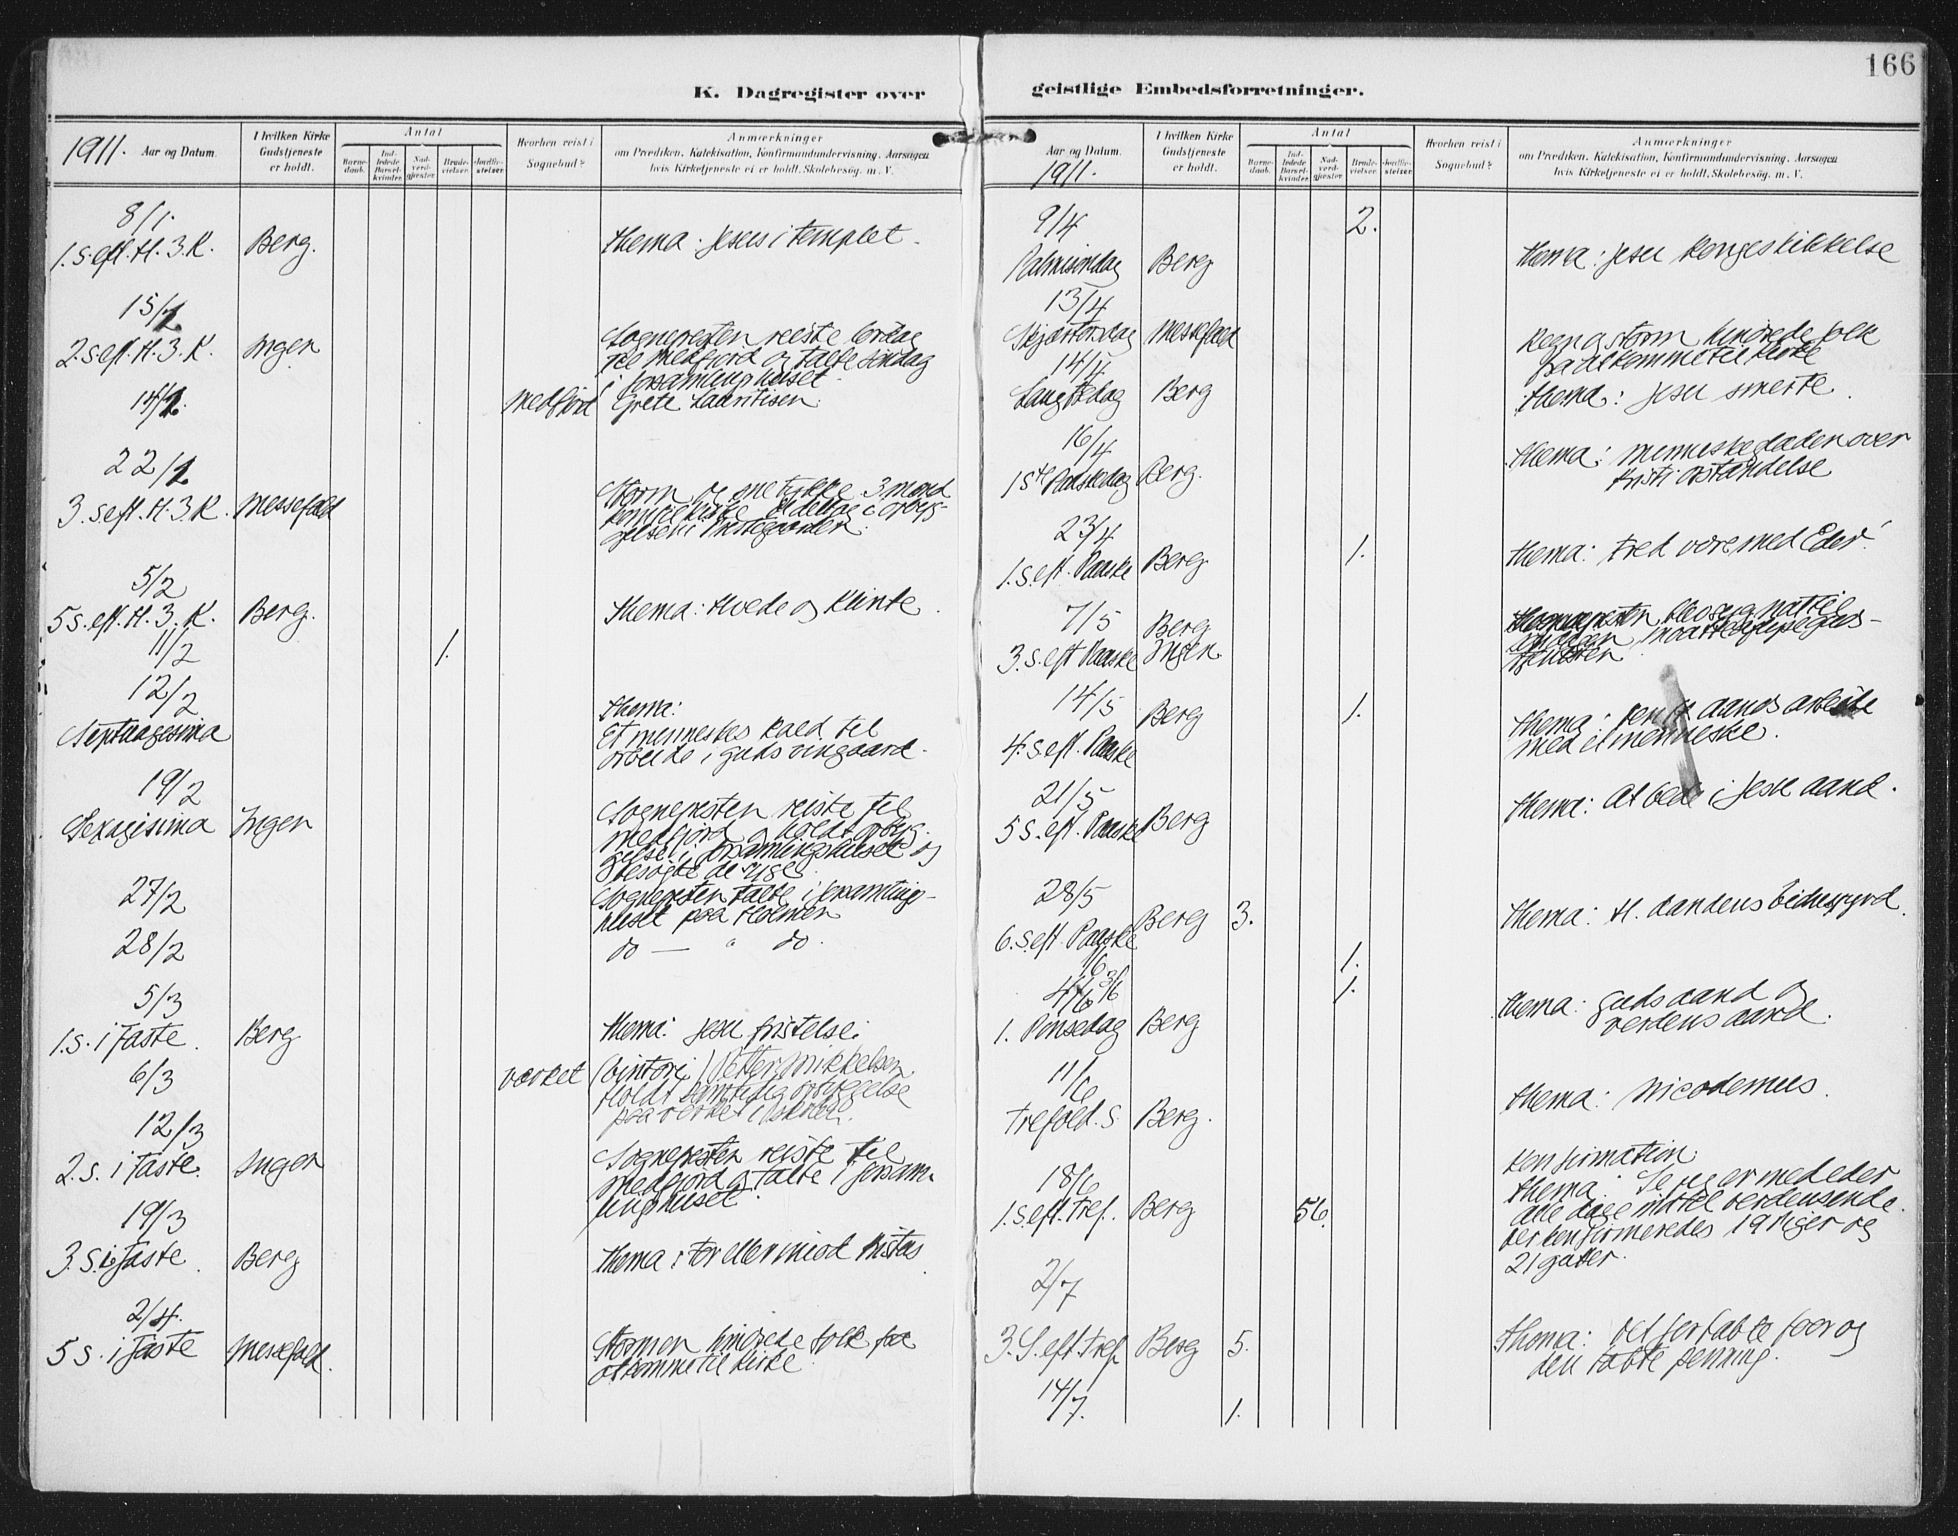 166
K. Dagregister over geistlige Embedsforretninger.
1911.
Aar og Datum.
I hvilken Kirke Gudstjeneste er holdt.
Antal
Barne-daab.
Ind-ledede Barsel-kvinder.
Nad-verd-gjæster.
Brude-vielser.
Jordfæ-stelser.
Hvorhen reist i Sognebud?
Anmærkninger
om Prædiken, Katekisation, Konfirmandundervisning. Aarsagen
hvis Kirketjeneste ei er holdt. Skolebesøg. m. V.
8/1
1. s. eft. H. 3. K. Berg. Thema: Jesus i templet.
15/1
2. s. eft. H. 3. K. Ingen Sognepresten reiste lørdag
til Medfjord og talte søndag
i forsamlingshuset.
14/1. Medfjord Grete Lauritisen.
22/1
3. s. eft. H. 3. K. Messefald Storm og snetykke. 3 mænd
kom til kirke
5/2
5 s. eft. H. 3. K. Berg. Thema: Hvede og Klinte.
11/2 1.
12/2
Septuagesima Thema:
Et menneskes kald til
arbeide i guds vingaard.
19/2
Sexagisima Ingen Sognepresten reiste til
Medfjord og holdt opbyg-
gelse i forsamlingshuset og
besøgte de syge.
27/2 Sognepresten talte i forsamlings-
huset paa Holmen
28/2 do — " do.
5/3
1. s. i Faste. Berg Thema: Jesu fristelse.
6/3 Værket Petter Mikkelsen.
Holdt samtidig opbyggelse
paa verket i skolen.
12/3
2. s. i Faste. Ingen Sognepresten reiste til
Medfjord og talte i forsam-
lingshuset.
19/3
3. S. i Faste. Berg Thema: For eller imod Kristus
2/4.
5 s. i Faste Messefald. Stormen hindrede folk fra
at komme til kirke.
Aar og Datum.
1911.
I hvilken Kirke Gudstjeneste er holdt.
Antal
Barne-daab.
Ind-ledede Barsel-kvinder.
Nad-verd-gjæster.
Brude-vielser.
Jordfæ-stelser.
Hvorhen reist i Sognebud?
Anmærkninger
om Prædiken, Katekisation, Konfirmandundervisning. Aarsagen
hvis Kirketjeneste ei er holdt. Skolebesøg. m. V.
9/4 2.
Palmesøndag Berg Thema: Jesu Kongeskikkelse
13/4
Skjærtorsdag Messefald Regn og storm hindrede folk
fra at komme til kirke
14/4
Langfredag Berg Thema: Jesu smerte.
16/4
1ste Paaskedag Berg. Thema: Menneskeglæden over
Kristi opstandelse
23/4
1. s. eft. Paaske Berg 1. Thema: Fred være med Eder!
7/5 Berg
3. s. eft Paaske Ingen.
14/5
4. s. eft. Paaske Berg 1. Thema: Den H. aands arbeide
med et menneske.
21/5
5 s. eft. Paaske Berg Thema: At bede i Jesu aand.
28/5
6. s. eft. Paaske Berg 3. Thema: H. Aandens vidnesbyrd.
1/6 1.
3/6 1.
4/6
1. Pinsedag Berg Thema: Guds aand og
verdens aand.
11/6
Trefold. S. Berg. Thema: Nicodemus.
18/6
1. s. eft. Tref. Berg 56. Konfirmation
Thema: Se jeg er med eder
alle dage indtil verdens ende.
Der konfirmeredes 19 piger og
21 gutter.
2/7
3. S. eft. Tref. Berg 5. Thema: Det fortabte faar og
den tabte penning.
14/7. 1.